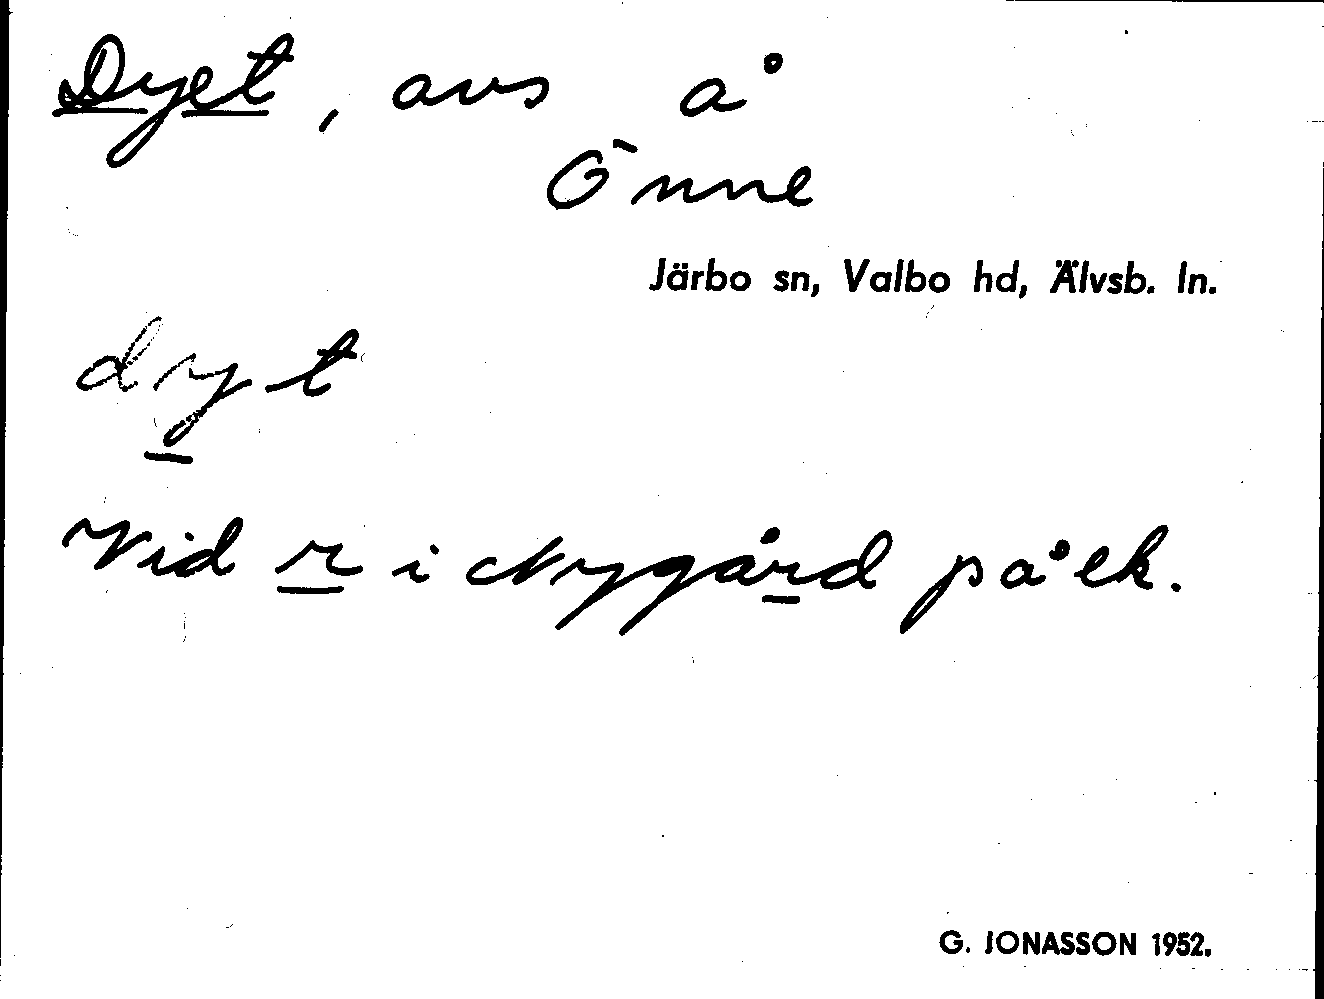 Dyet, avs å
Önne
Järbo sn, Valbo hd, Älvsb. ln.
dyt
Vid r i Nygård på ek.
G. JONASSON 1952.